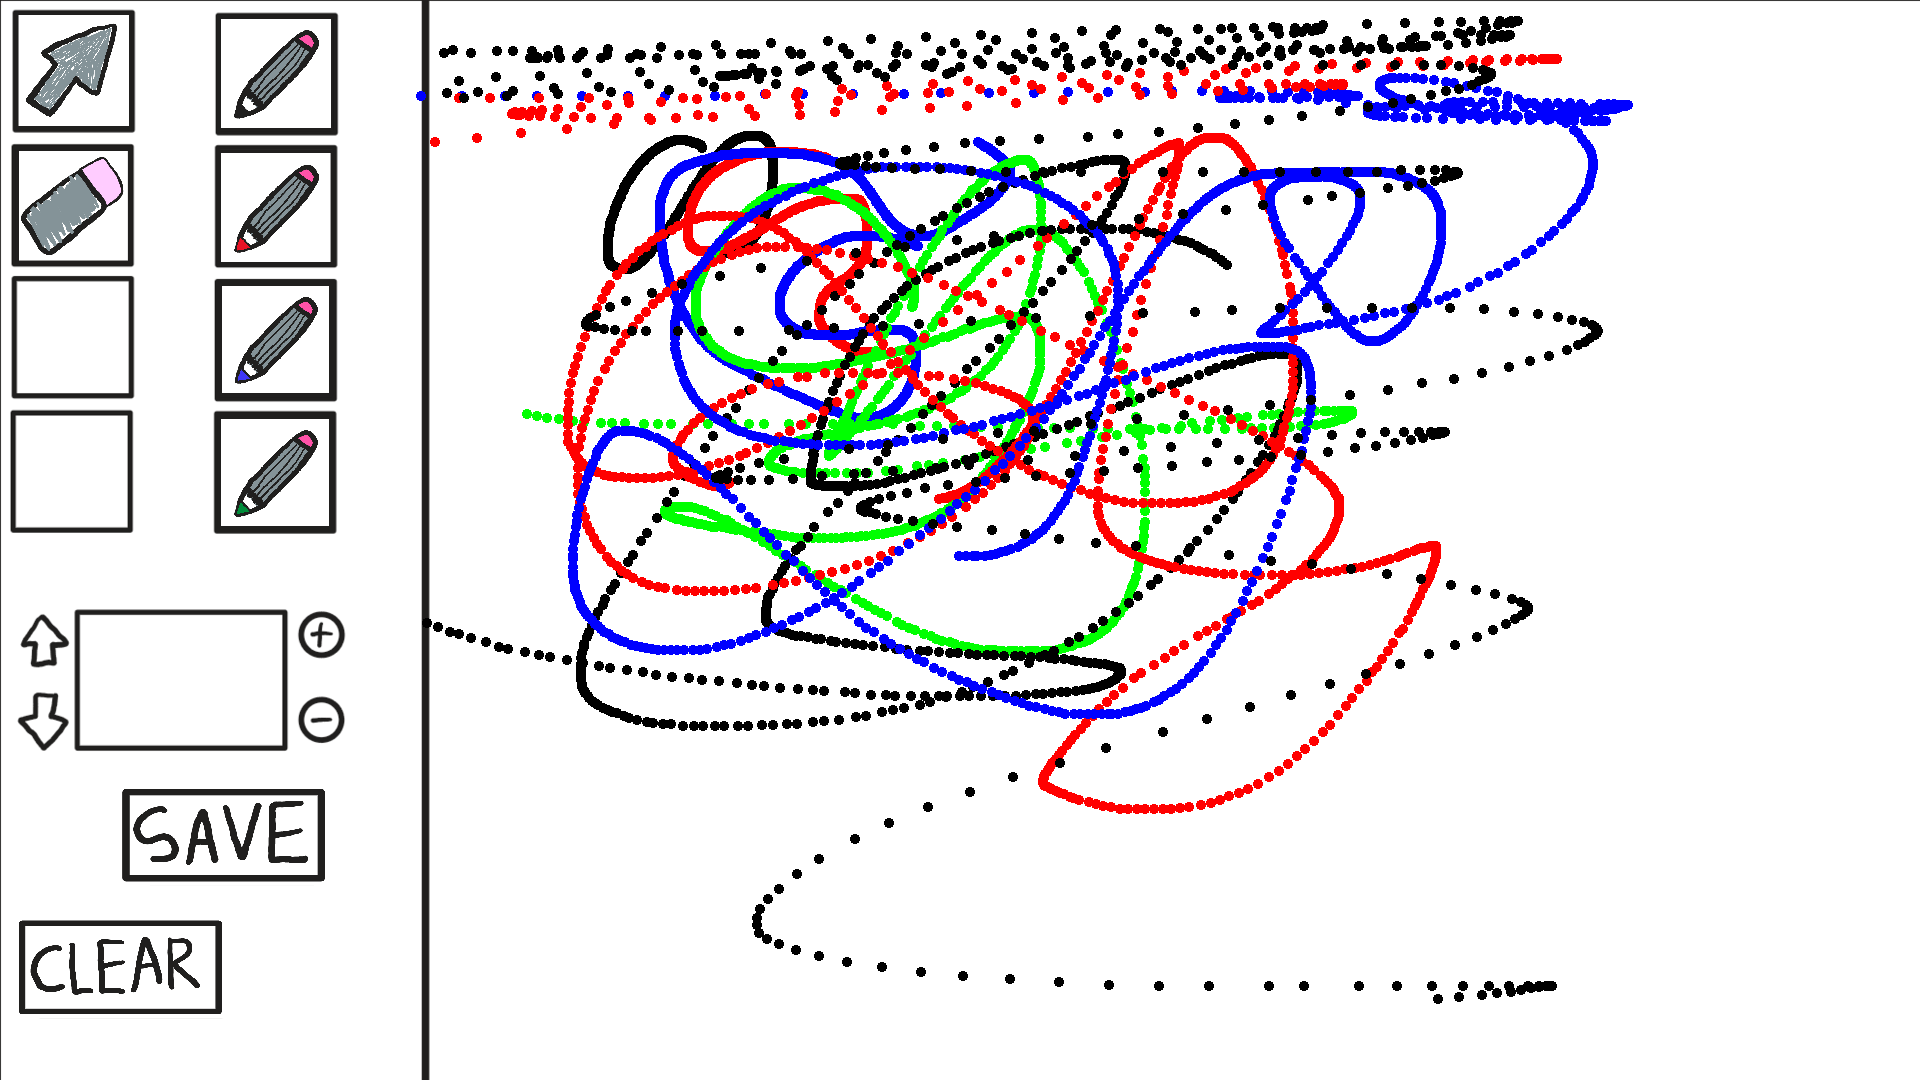 SAVE
CLEAR